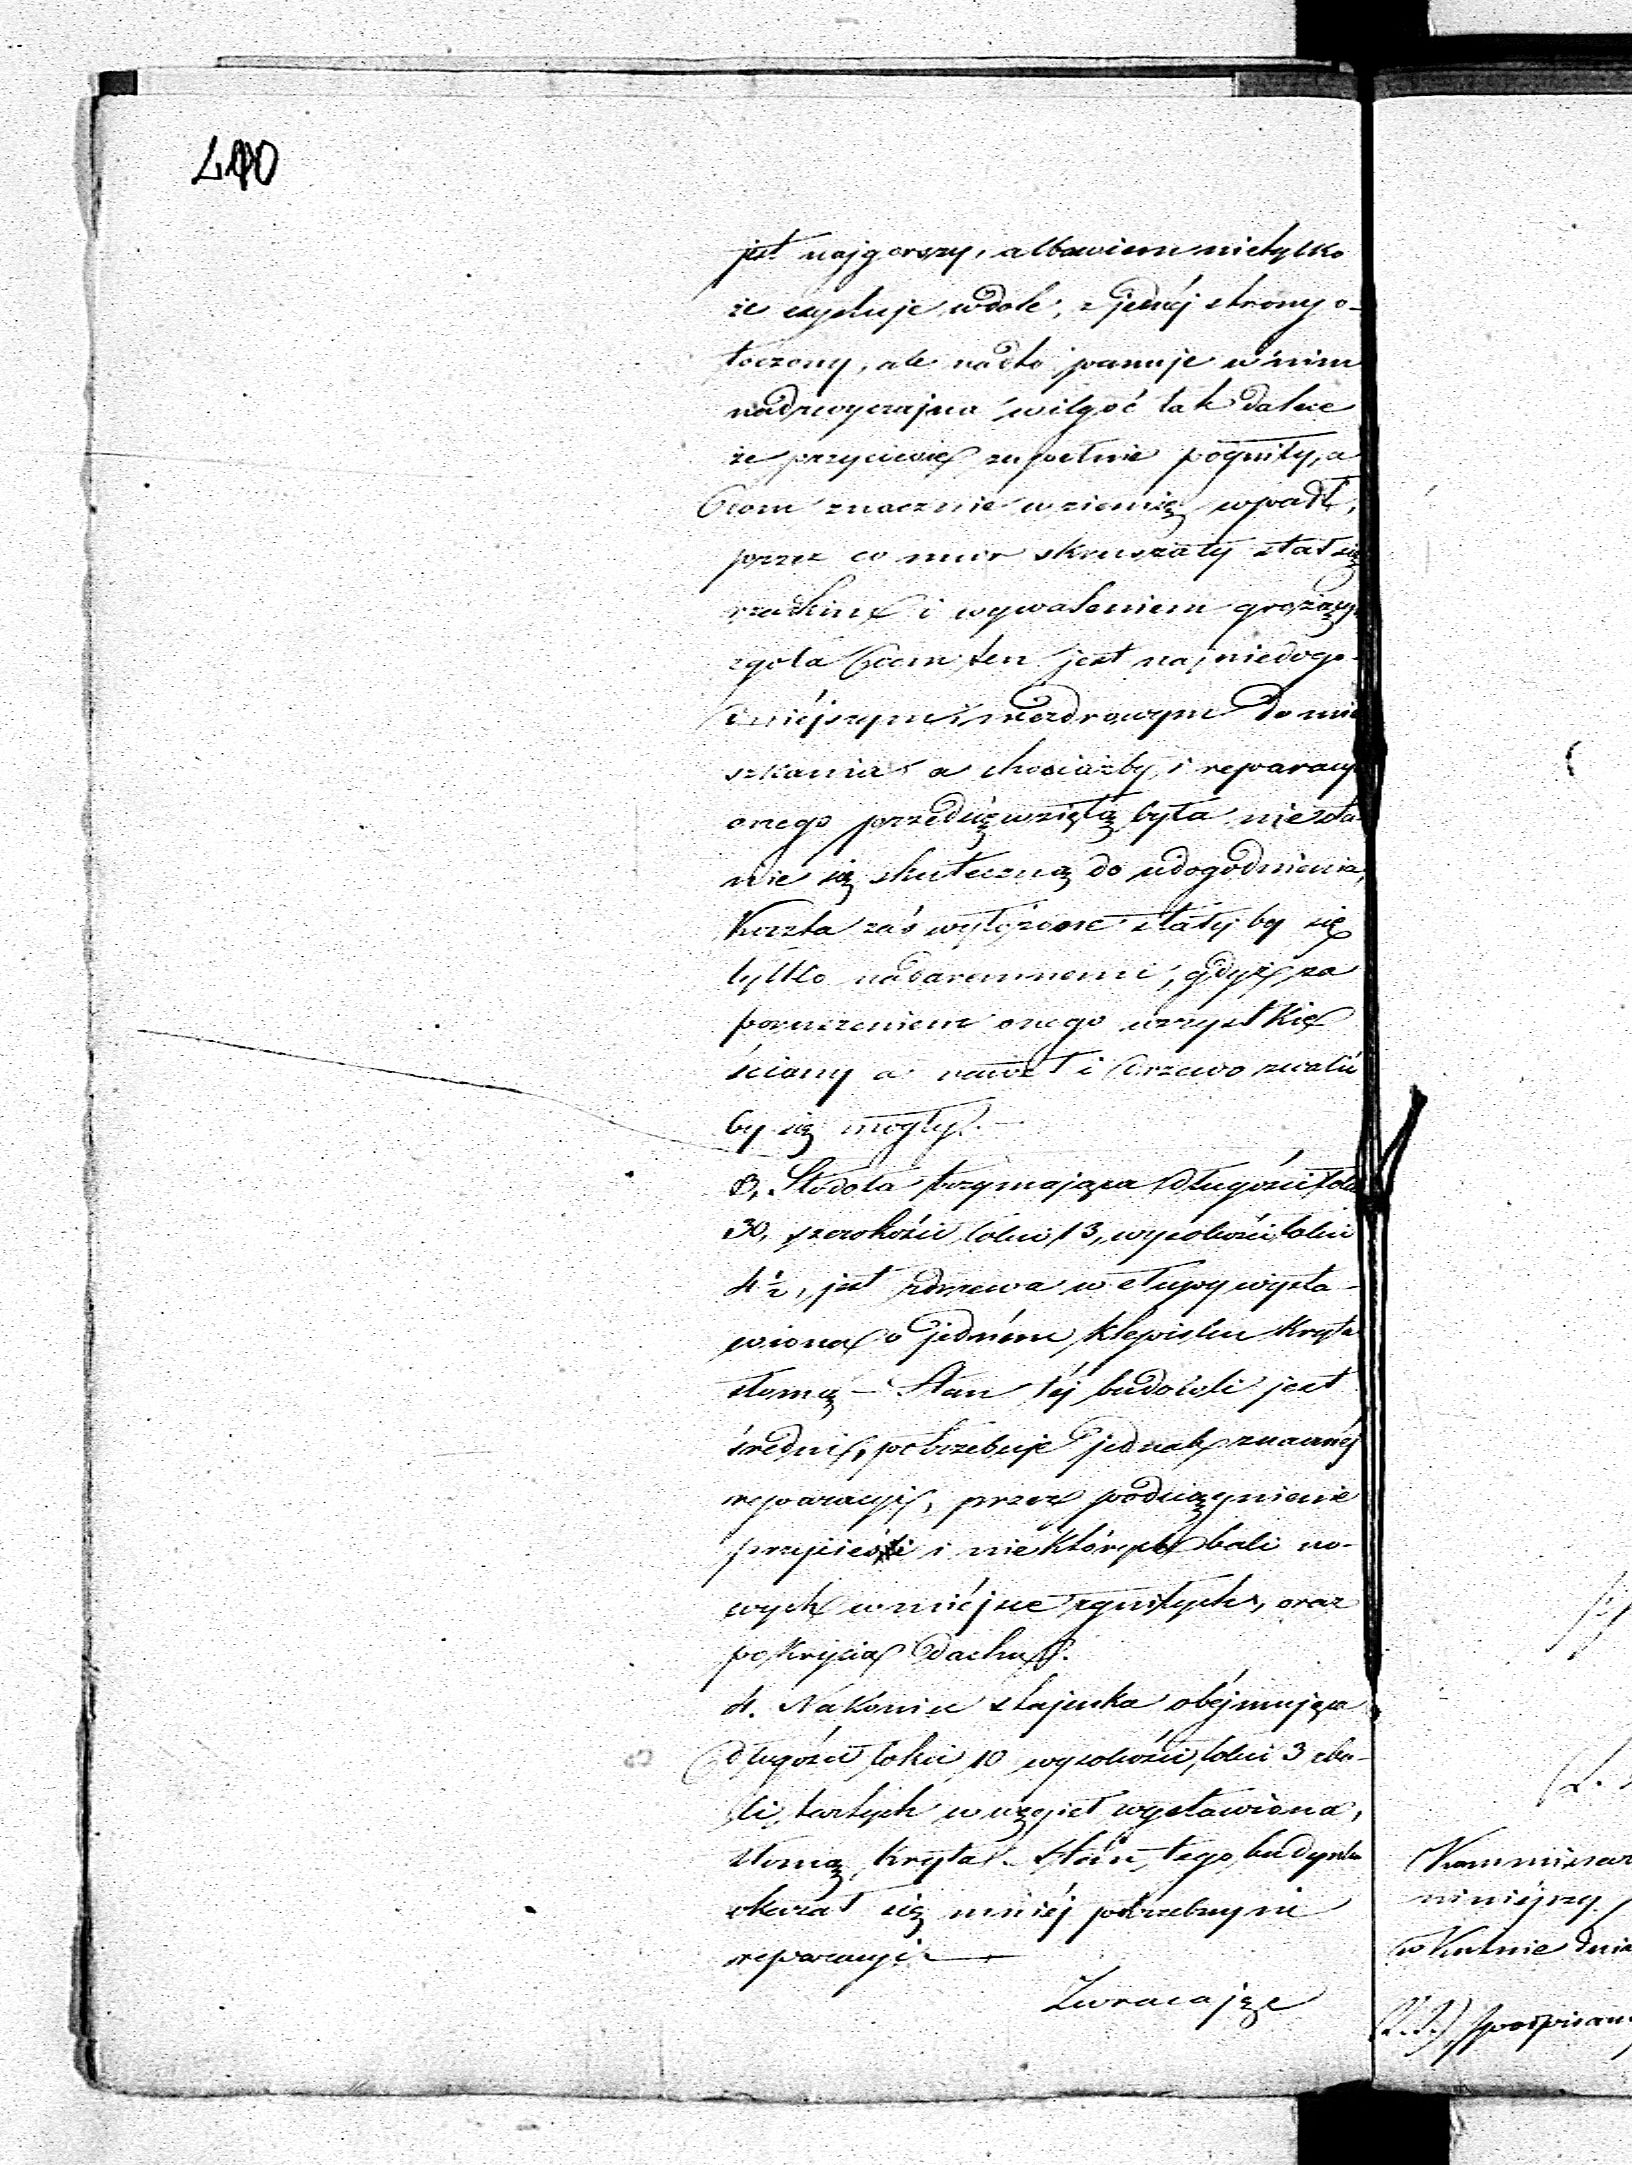 400
jest najgorszy, albowiem nietylko
że exystuje w dole, z jednéj strony o-
toczony, ale nadto panuje w nim
nadzwyczajna wilgoć tak dalece
że przyciesie zupełnie pogniły, a
Dom znacznie w ziemię wpadł,
przez co mur skruszały stał się
rzadkim i wywaleniem grożący
zgoła Dom ten jest najniedogo-
dniéjszym i niezdrowym do mie
szkania a chociażby i reparacya
onego przedsięwziętą była nie sta
nie się skuteczną do udogodnienia,
Koszta zaś wyłożone stały by się
tylko nadaremnemi, gdyż za
poruszeniem onego wszystkie
ściany a nawet i drzewo zwalić
by się mogły. —
3, Stodoła trzymająca długości łokci
30, szerokości łokci 13, wysokości łokci
4½, jest z drzewa w słupy wysta-
wiona o jedném klepisku kryta
słomą — Stan téj budowli jest
średni, potrzebuje jednak znacznéj
reparacyi, przez podciągnienie
przyciesi i niektórych bali no-
wych w miéjsce zgniłych, oraz
pokrycia dachu.
4. Nakoniec stajenka obéjmująca
długości łokci 10 wysokości łokci 3 z ba-
li tartych w węgieł wystawiona,
słomą kryta. Stan tego budynku
okazał się mniéj potrzebnym
reparacyi —
Zwracając
Kommissarz
niniéjszy
w Kutnie dnia
(L.S.) podpisany